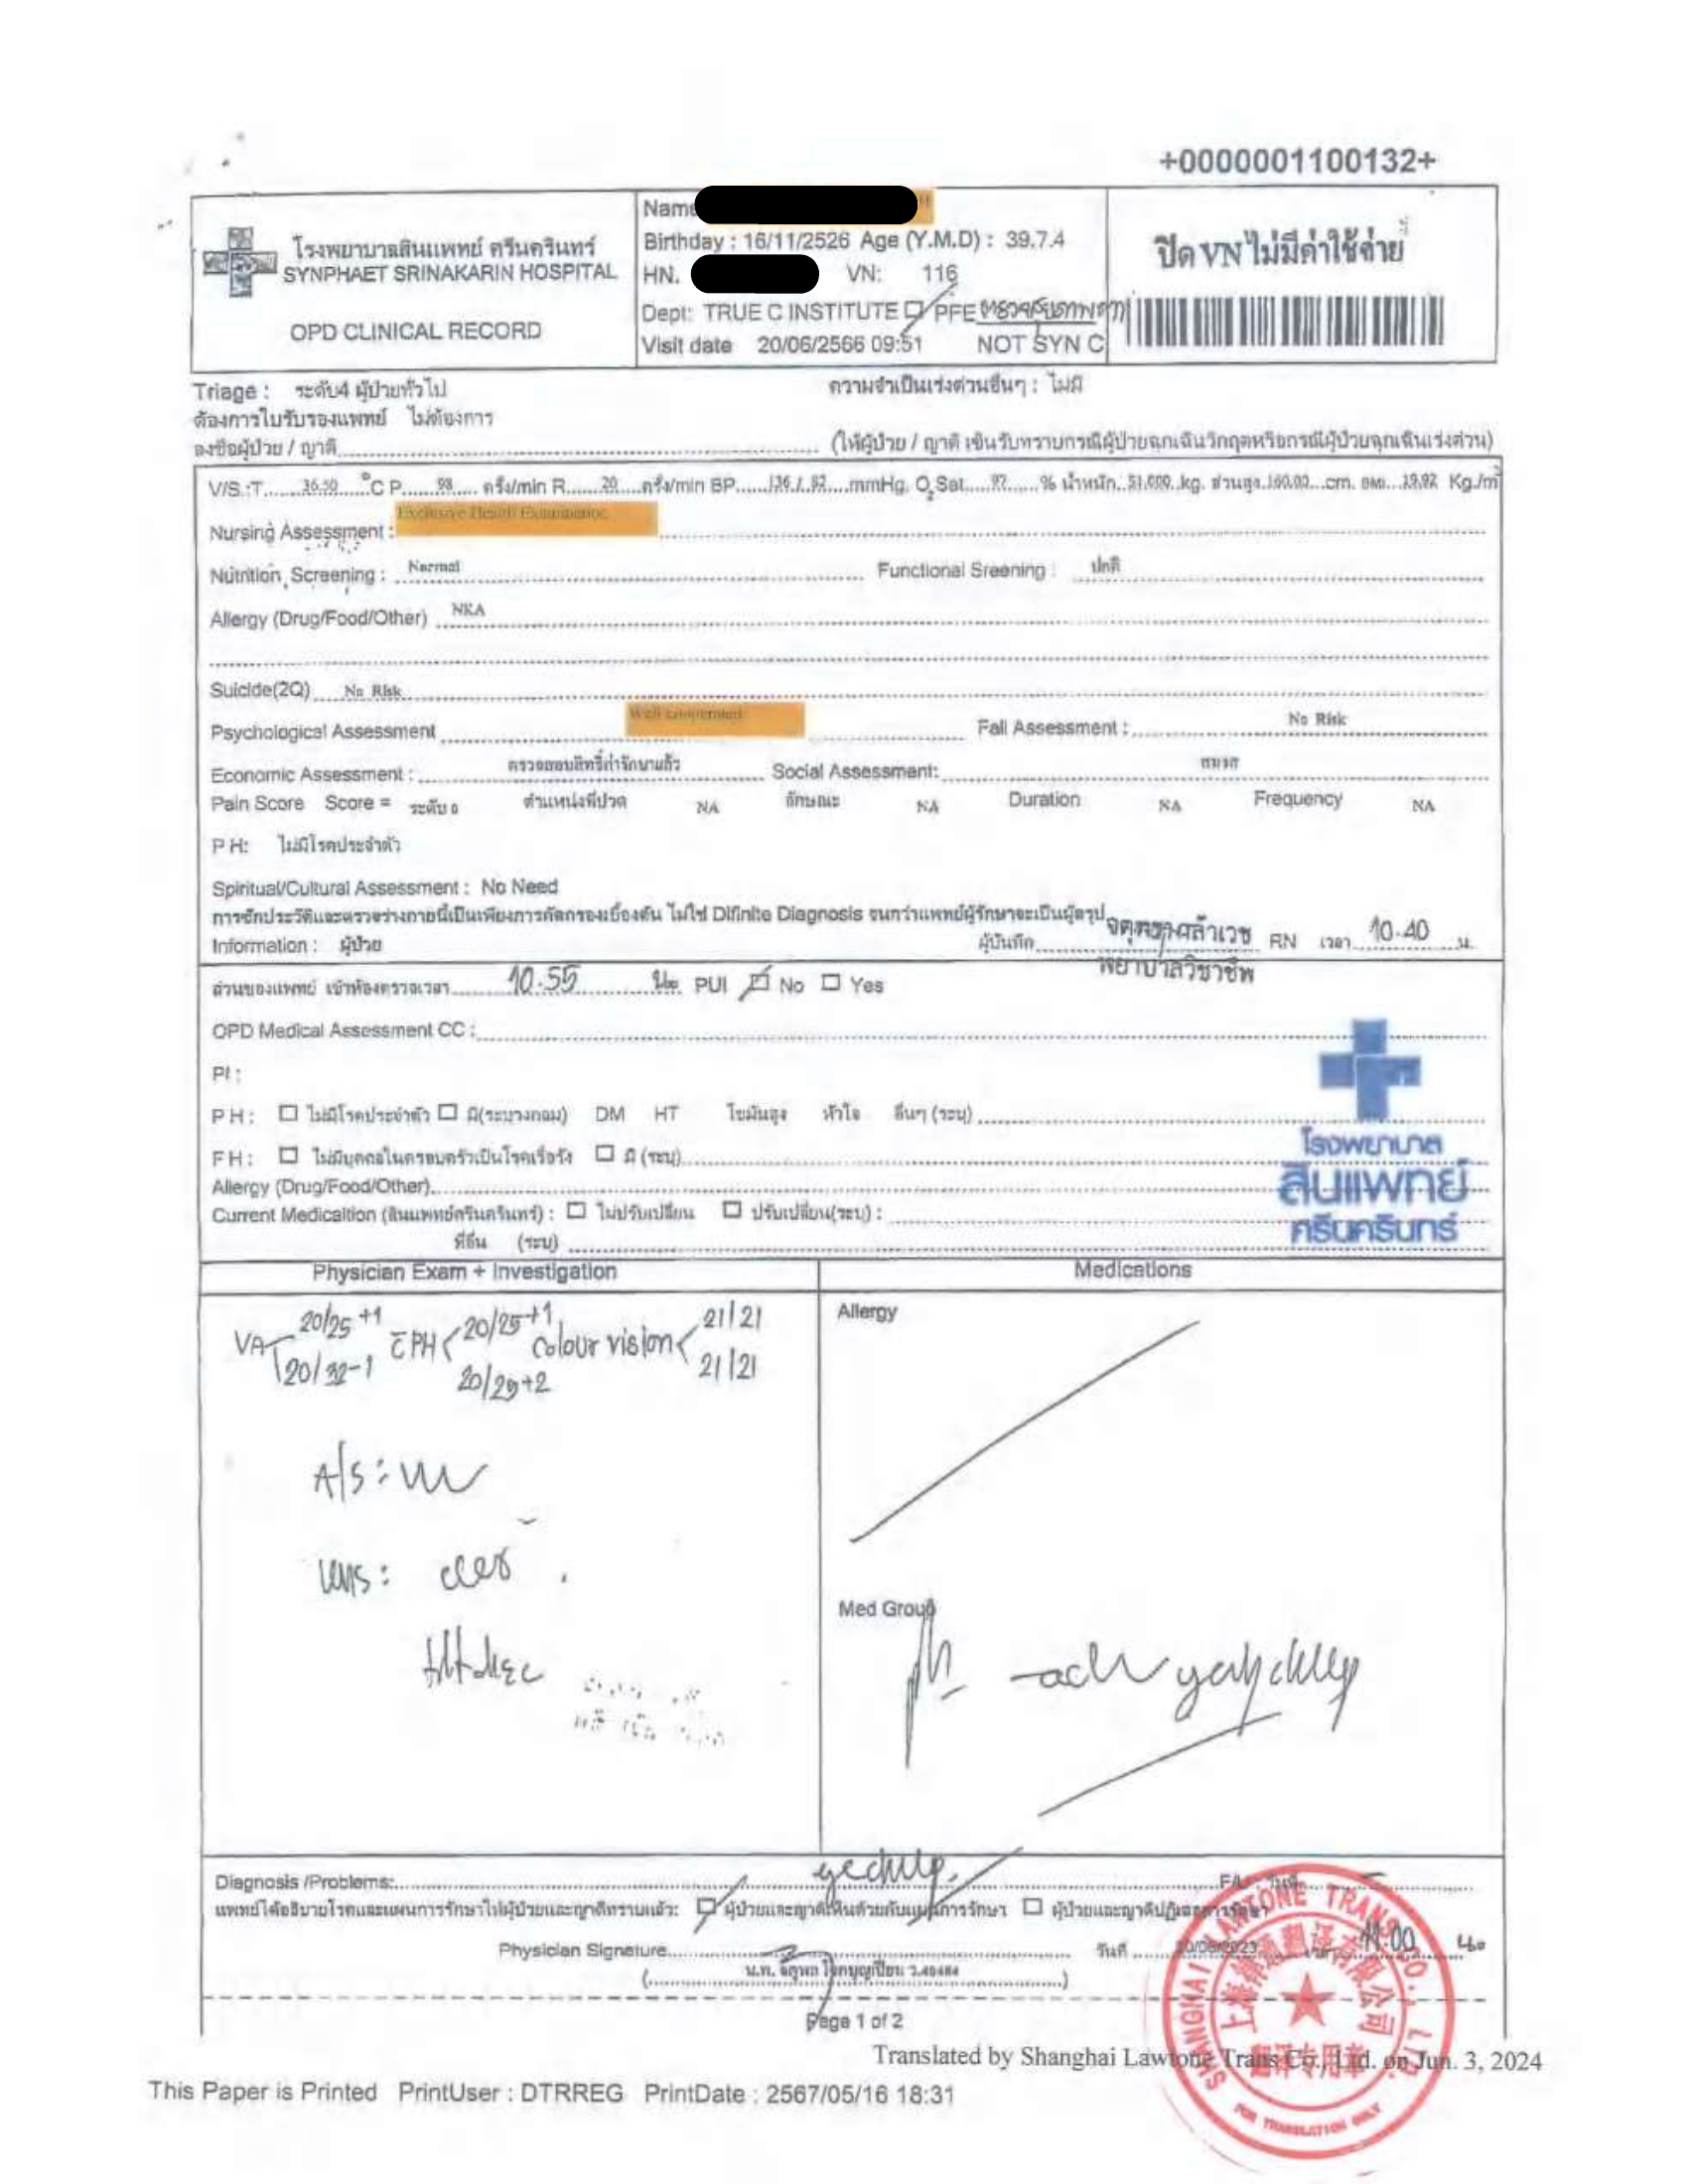 +0000001100132+
โรงพยาบาลสินแพทย์ ศรีนครินทร์
SYNPHAET SRINAKARIN HOSPITAL
OPD CLINICAL RECORD
Name
Birthday : 16/11/2526 Age (Y.M.D) : 39.7.4
HN. VN: 116
Dept: TRUE C INSTITUTE ☐ PFE
Visit date 20/06/2566 09:51 NOT SYN C
ปิด VN ไม่มีค่าใช้จ่าย
Triage : ระดับ4 ผู้ป่วยทั่วไป ความจำเป็นเร่งด่วนอื่นๆ : ไม่มี
ต้องการใบรับรองแพทย์ ไม่ต้องการ
ลงชื่อผู้ป่วย / ญาติ (ให้ผู้ป่วย / ญาติ เซ็นรับทราบกรณีผู้ป่วยฉุกเฉินวิกฤตหรือกรณีผู้ป่วยฉุกเฉินเร่งด่วน)
V/S.:T. 36.50 °C P 98 ครั้ง/min R 20 ครั้ง/min BP 136 / 82 mmHg. O2Sat 97 % น้ำหนัก 51.000 kg. ส่วนสูง 160.00 cm. BMI 19.92 Kg./m2
Nursing Assessment : Exclusive Health Examination
Nutrition Screening : Normal Functional Sreening : ปกติ
Allergy (Drug/Food/Other) NKA
Suicide(2Q) No Risk
Psychological Assessment Well cooperated Fall Assessment : No Risk
Economic Assessment : ตรวจสอบสิทธิ์ค่ารักษาแล้ว Social Assessment:
Pain Score Score = ระดับ 0 ตำแหน่งที่ปวด NA ลักษณะ NA Duration NA Frequency NA
P H: ไม่มีโรคประจำตัว
Spiritual/Cultural Assessment : No Need
การซักประวัติและตรวจร่างกายนี้เป็นเพียงการคัดกรองเบื้องต้น ไม่ใช่ Difinite Diagnosis จนกว่าแพทย์ผู้รักษาจะเป็นผู้สรุป
Information : ผู้ป่วย ผู้บันทึก RN เวลา 10.40 น.
พยาบาลวิชาชีพ
ส่วนของแพทย์ เข้าห้องตรวจเวลา 10.55 น. PUI ☑ No ☐ Yes
OPD Medical Assessment CC :
PI :
P H : ☐ ไม่มีโรคประจำตัว ☐ มี(ระบุวงกลม) DM HT ไขมันสูง หัวใจ อื่นๆ (ระบุ)
F H : ☐ ไม่มีบุคคลในครอบครัวเป็นโรคเรื้อรัง ☐ มี (ระบุ)
Allergy (Drug/Food/Other)
Current Medicaltion (สินแพทย์ศรีนครินทร์) : ☐ ไม่ปรับเปลี่ยน ☐ ปรับเปลี่ยน(ระบุ) :
ที่อื่น (ระบุ)
โรงพยาบาล
สินแพทย์
ศรีนครินทร์
Physician Exam + Investigation Medications
VA 20/25 +1 20/32-1 c̄ PH 20/25+1 20/25+2 Colour vision 21/21 21/21
Allergy
A/S :
Lens: clear
Med Group
Diagnosis /Problems:
แพทย์ได้อธิบายโรคและแผนการรักษาให้ผู้ป่วยและญาติทราบแล้ว: ☑ ผู้ป่วยและญาติเห็นด้วยกับแผนการรักษา ☐ ผู้ป่วยและญาติปฏิเสธการรักษา
Physician Signature วันที่ 20/06/2023 11.00 น.
Page 1 of 2
SHANGHAI LAWTONE TRANS CO., LTD.
翻译专用章
FOR TRANSLATION ONLY
Translated by Shanghai Lawtone Trans Co., Ltd. on Jun. 3, 2024
This Paper is Printed PrintUser : DTRREG PrintDate : 2567/05/16 18:31